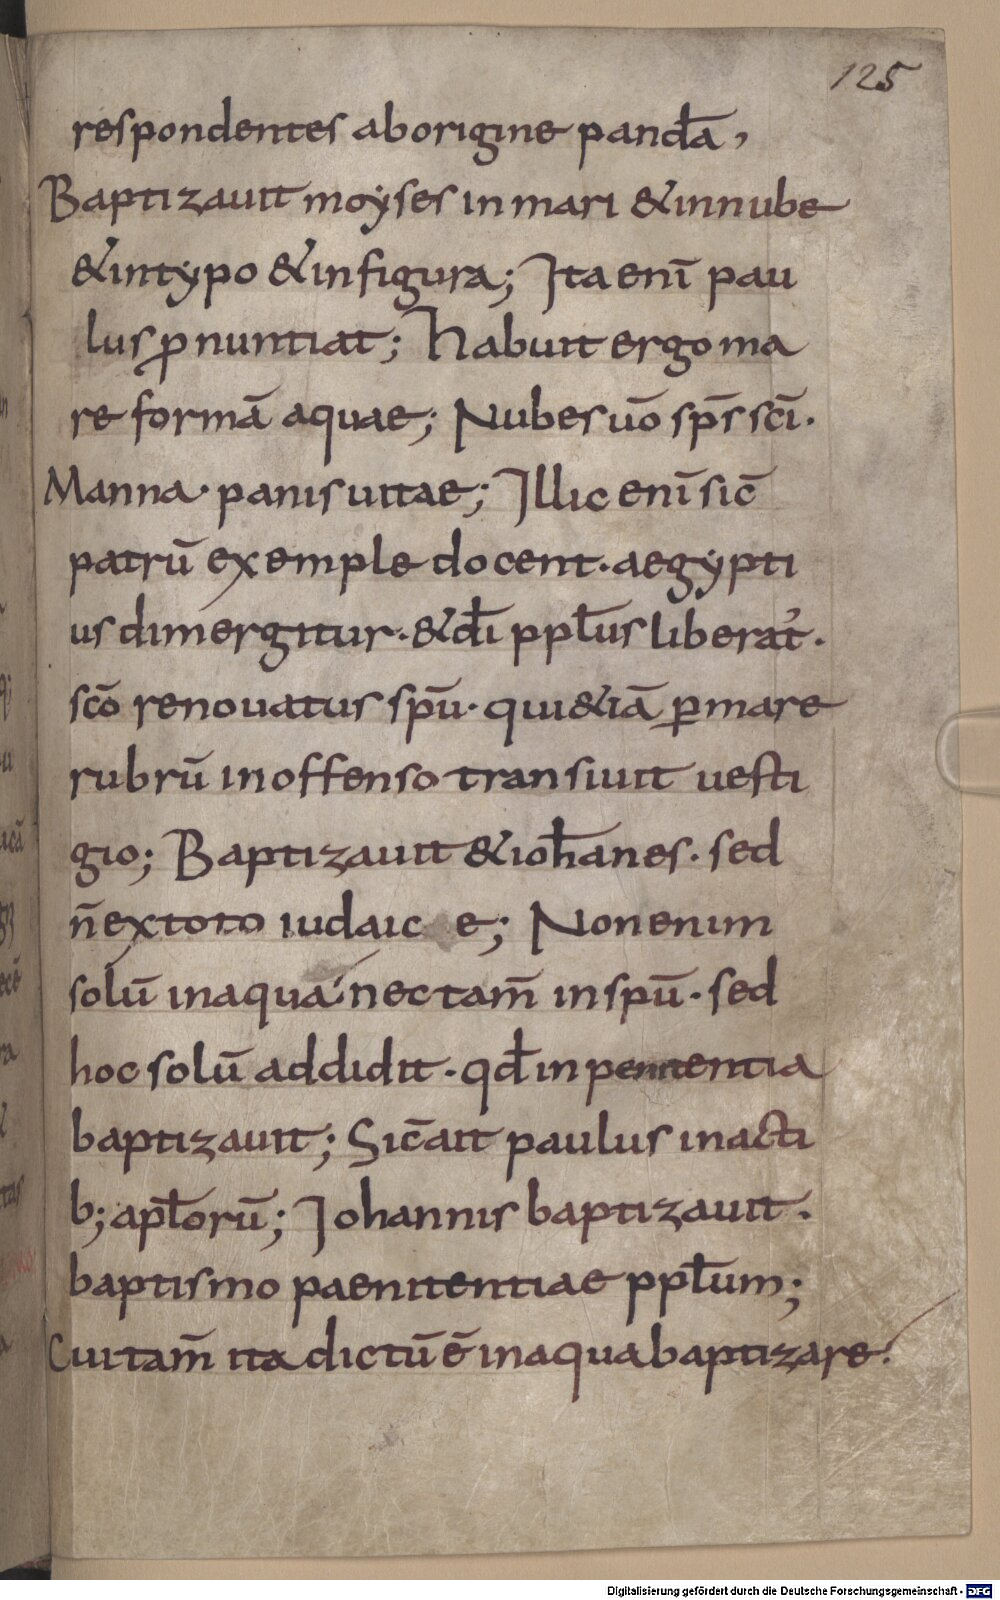 125
respondentes aborigine pand̄a,
Baptizauit moyses in mari & innube
& intypo & infigura; Ita enī pau
lus ꝓnuntiat; Habuit ergo ma
re formā aquae; Nubes uō sp̄s sc̄i.
Manna· panis uitae; Illic enī sic̄
patrū exemple docent· aegypti
us dimergitur· & dī pplūs liberat᾽.
sc̄o renouatus spū· qui &iā ꝑmare
rubrū inoffenso transiuit uesti
gio; Baptizauit & ioh̄anes· sed
n̄ extoto iudaice; Non enim
solū inaqua nec tam̄ in spū· sed
hoc solū addidit· qd̄ in penitentia
baptizauit; Sic̄ ait paulus in acti
b; apl̄orū; Johannis baptizauit.
baptismo paenitentiae ppl̄um;
Cui tam̄ ita dictū ē inaqua baptizare.
Digitalisierung gefördert durch die Deutsche Forschungsgemeinschaft · DFG